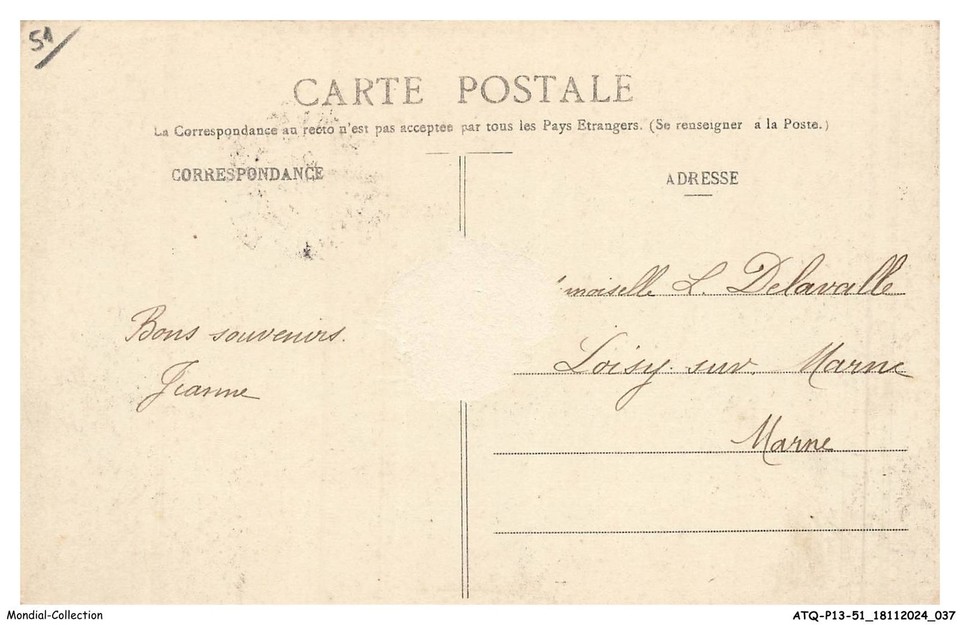 51
CARTE POSTALE
La Correspondance au recto n'est pas acceptée par tous les Pays Etrangers. (Se renseigner à la Poste.)
CORRESPONDANCE
ADRESSE
moiselle L. Delavalle
Bons souvenirs.
Loisy sur Marne
Jeanne
Marne
Mondial-Collection
ATQ-P13-51_18112024_037